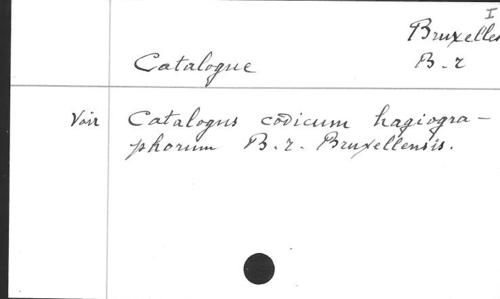 I
Bruxelles
Catalogue B. r
Voir Catalogus codicum hagiogra-
phorum B. r. Bruxellensis.